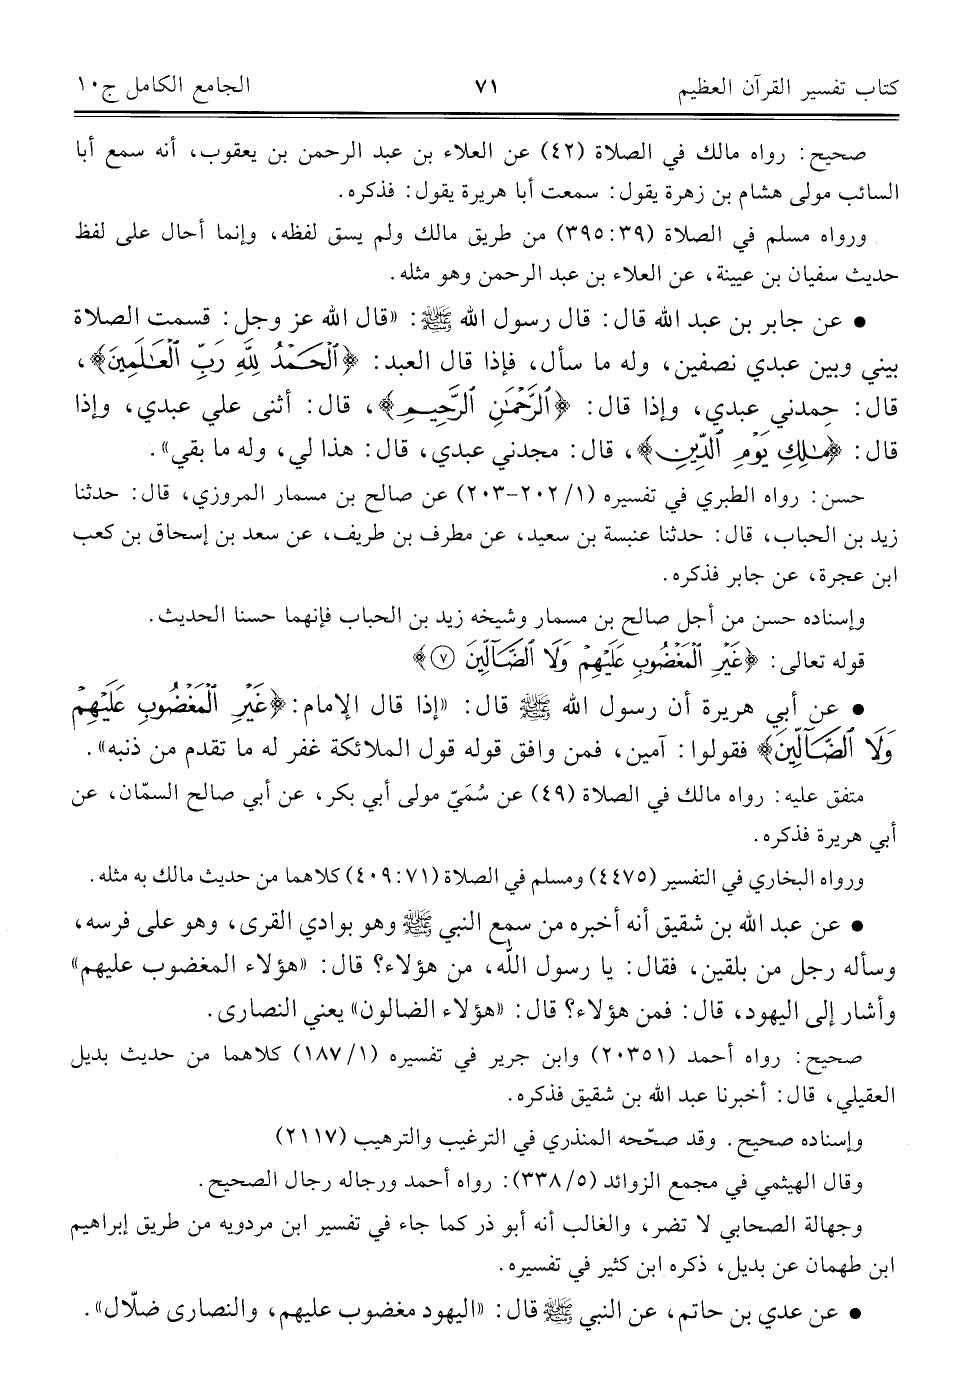 كتاب تفسير القرآن العظيم ٧١ الجامع الكامل ج١٠
صحيح: رواه مالك في الصلاة (٤٢) عن العلاء بن عبد الرحمن بن يعقوب، أنه سمع أبا
السائب مولى هشام بن زهرة يقول: سمعت أبا هريرة يقول: فذكره.
ورواه مسلم في الصلاة (٣٩:٣٩٥) من طريق مالك ولم يسق لفظه، وإنما أحال على لفظ
حديث سفيان بن عيينة، عن العلاء بن عبد الرحمن وهو مثله.
• عن جابر بن عبد الله قال: قال رسول الله ﷺ: «قال الله عز وجل: قسمت الصلاة
بيني وبين عبدي نصفين، وله ما سأل، فإذا قال العبد: ﴿ٱلۡحَمۡدُ لِلَّهِ رَبِّ ٱلۡعَٰلَمِينَ﴾،
قال: حمدني عبدي، وإذا قال: ﴿ٱلرَّحۡمَٰنِ ٱلرَّحِيمِ﴾، قال: أثنى علي عبدي، وإذا
قال: ﴿مَٰلِكِ يَوۡمِ ٱلدِّينِ﴾، قال: مجدني عبدي، قال: هذا لي، وله ما بقي».
حسن: رواه الطبري في تفسيره (١/ ٢٠٢-٢٠٣) عن صالح بن مسمار المروزي، قال: حدثنا
زيد بن الحباب، قال: حدثنا عنبسة بن سعيد، عن مطرف بن طريف، عن سعد بن إسحاق بن كعب
ابن عجرة، عن جابر فذكره.
وإسناده حسن من أجل صالح بن مسمار وشيخه زيد بن الحباب فإنهما حسنا الحديث.
قوله تعالى: ﴿غَيۡرِ ٱلۡمَغۡضُوبِ عَلَيۡهِمۡ وَلَا ٱلضَّآلِّينَ ٧﴾
• عن أبي هريرة أن رسول الله ﷺ قال: «إذا قال الإمام: ﴿غَيۡرِ ٱلۡمَغۡضُوبِ عَلَيۡهِمۡ
وَلَا ٱلضَّآلِّينَ﴾ فقولوا: آمين، فمن وافق قوله قول الملائكة غفر له ما تقدم من ذنبه».
متفق عليه: رواه مالك في الصلاة (٤٩) عن سُمَيّ مولى أبي بكر، عن أبي صالح السمّان، عن
أبي هريرة فذكره.
ورواه البخاري في التفسير (٤٤٧٥) ومسلم في الصلاة (٧١:٤٠٩) كلاهما من حديث مالك به مثله.
• عن عبد الله بن شقيق أنه أخبره من سمع النبي ﷺ وهو بوادي القرى، وهو على فرسه،
وسأله رجل من بلقين، فقال: يا رسول الله، من هؤلاء؟ قال: «هؤلاء المغضوب عليهم»
وأشار إلى اليهود، قال: فمن هؤلاء؟ قال: «هؤلاء الضالون» يعني النصارى.
صحيح: رواه أحمد (٢٠٣٥١) وابن جرير في تفسيره (١/ ١٨٧) كلاهما من حديث بديل
العقيلي، قال: أخبرنا عبد الله بن شقيق فذكره.
وإسناده صحيح. وقد صحّحه المنذري في الترغيب والترهيب (٢١١٧)
وقال الهيثمي في مجمع الزوائد (٥/ ٣٣٨): رواه أحمد ورجاله رجال الصحيح.
وجهالة الصحابي لا تضر، والغالب أنه أبو ذر كما جاء في تفسير ابن مردويه من طريق إبراهيم
ابن طهمان عن بديل، ذكره ابن كثير في تفسيره.
• عن عدي بن حاتم، عن النبي ﷺ قال: «اليهود مغضوب عليهم، والنصارى ضلّال».